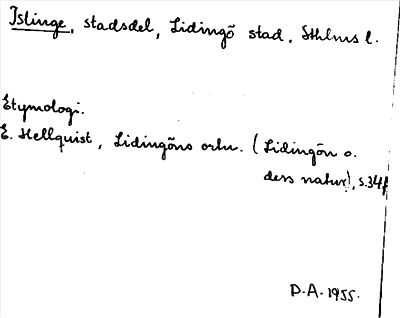 Islinge, stadsdel, Lidingö stad, Sthlms l.
Etymologi.
E. Hellquist, Lidingöns ortn. (Lidingön o.
dess natur), s. 34f
D.A. 1955.